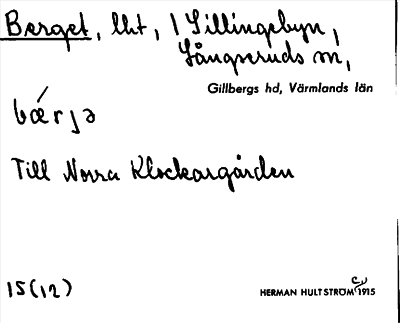 Berget, lht, 1 Sillingebyn,
Långseruds sn,
Gillbergs hd, Värmlands län
bǽrjə
Till Norra Klockargården
15(12)
HERMAN HULTSTRÖM 1915